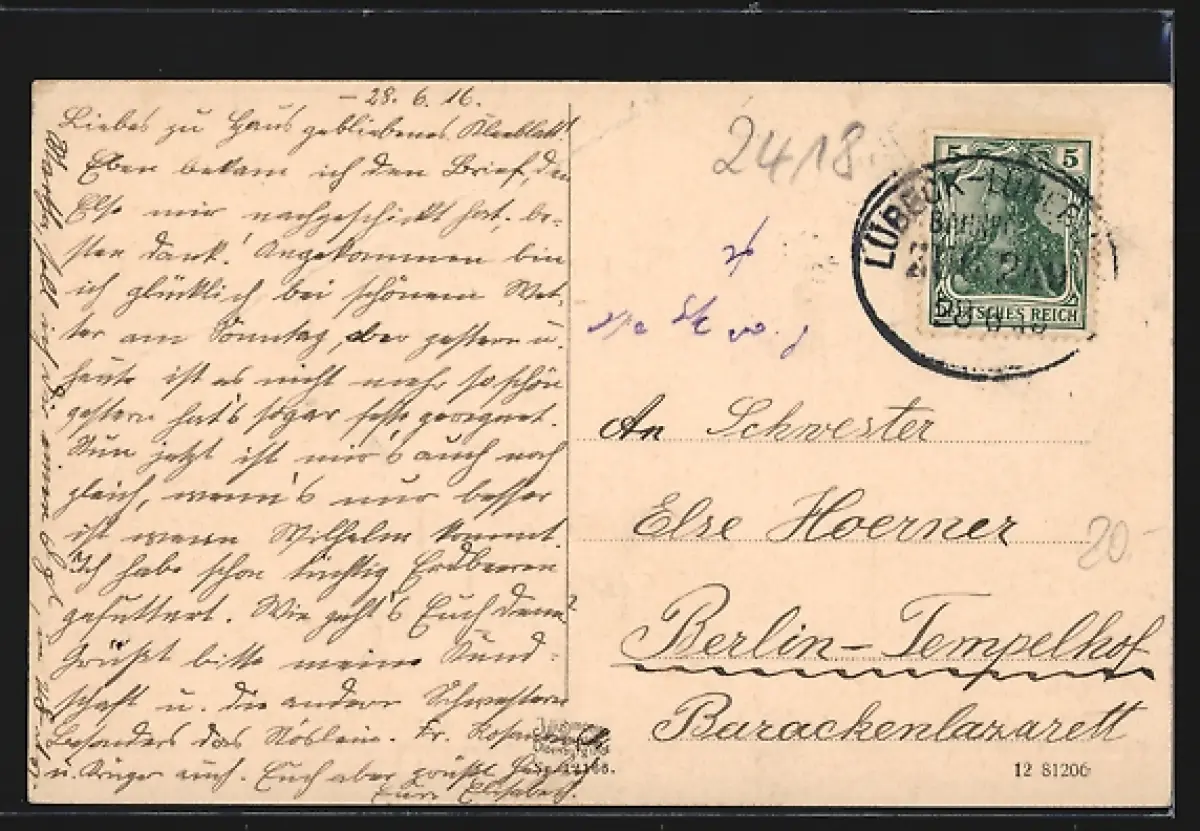 - 28. 6. 16.
Liebes zu Haus gebliebenes Kleeblatt!
Eben bekam ich den Brief, den
Else mir nachgeschickt hat, be-
sten Dank! Angekommen bin
ich glücklich bei schönem Wet-
ter am Sonntag, aber gestern u.
heute ist es nicht mehr so schön
gestern hat's sogar feste geregnet.
Nun jetzt ist mir's auch noch
gleich, wenn's nur besser
ist wenn Wilhelm kommt.
Ich habe schon tüchtig Erdbeeren
gefuttert. Wie geht's Euch denn?
Grüßt bitte meine Kund-
schaft u. die andern Schwestern
besonders das Röslein. Fr.
u. Krüger auch. Euch aber grüßt herzlich
Eure Elisabeth.
2418
5 5
LÜBECK-
BAHNPOST
ZUG
28 6 16
DEUTSCHES REICH
An Schwester
Else Hoerner
20-
Berlin-Tempelhof
Barackenlazarett
12 81206